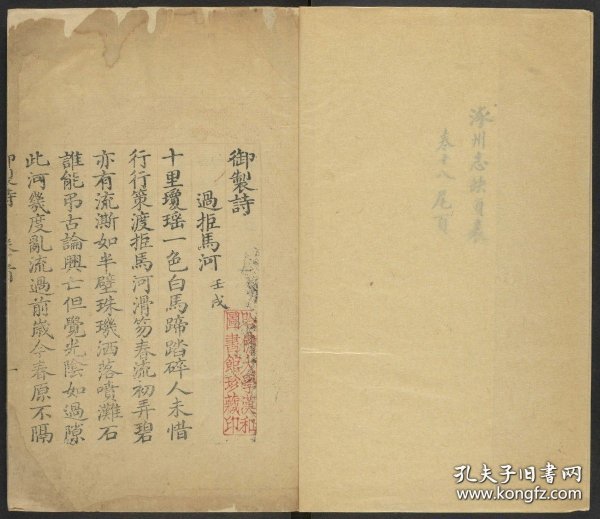 涿州志缺頁表
卷十八尾頁
御製詩
過拒馬河 壬戌
十里瓊瑶一色白馬蹄踏碎人未惜
行行策渡拒馬河滑笏春流初弄碧
亦有流澌如半壁珠璣洒落噴灘石
誰能弔古論興亡但覺光陰如過隙
此河幾度亂流過前歲今春原不隔
御製詩 卷首 一
哈佛大學漢和
圖書館珍藏印
孔夫子旧书网
www.kongfz.com